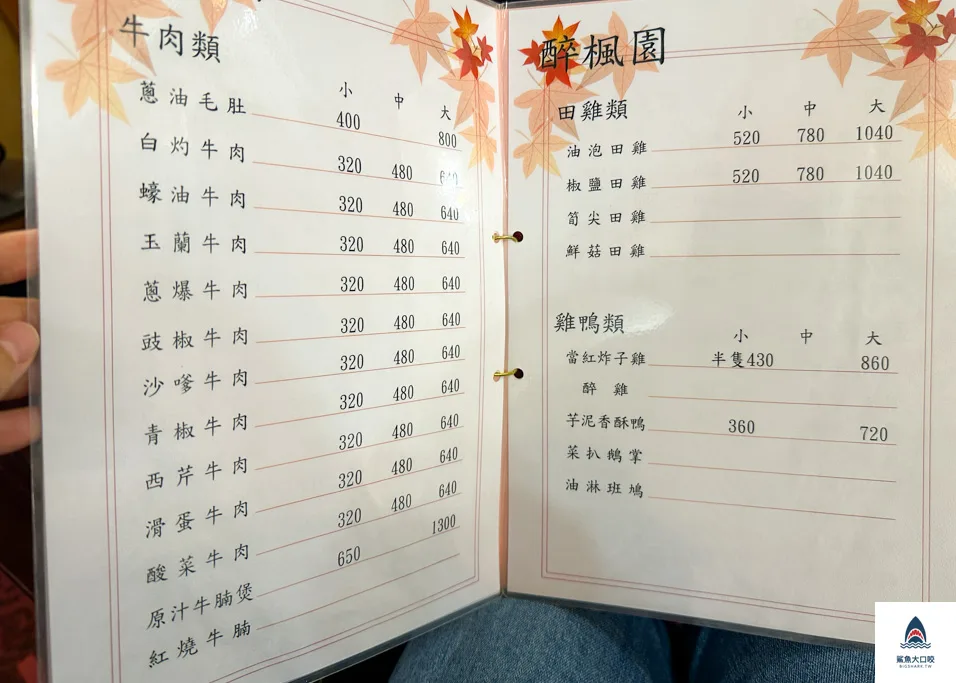 牛肉類
小 中 大
蔥油毛肚 400 800
白灼牛肉 320 480 640
蠔油牛肉 320 480 640
玉蘭牛肉 320 480 640
蔥爆牛肉 320 480 640
豉椒牛肉 320 480 640
沙嗲牛肉 320 480 640
青椒牛肉 320 480 640
西芹牛肉 320 480 640
滑蛋牛肉 320 480 640
酸菜牛肉 320 480 640
原汁牛腩煲 650 1300
紅燒牛腩
醉楓園
田雞類 小 中 大
油泡田雞 520 780 1040
椒鹽田雞 520 780 1040
筍尖田雞
鮮菇田雞
雞鴨類 小 中 大
當紅炸子雞 半隻430 860
醉雞
芋泥香酥鴨 360 720
菜扒鵝掌
油淋班鳩
鯊魚大口咬
BIGSHARK.TW